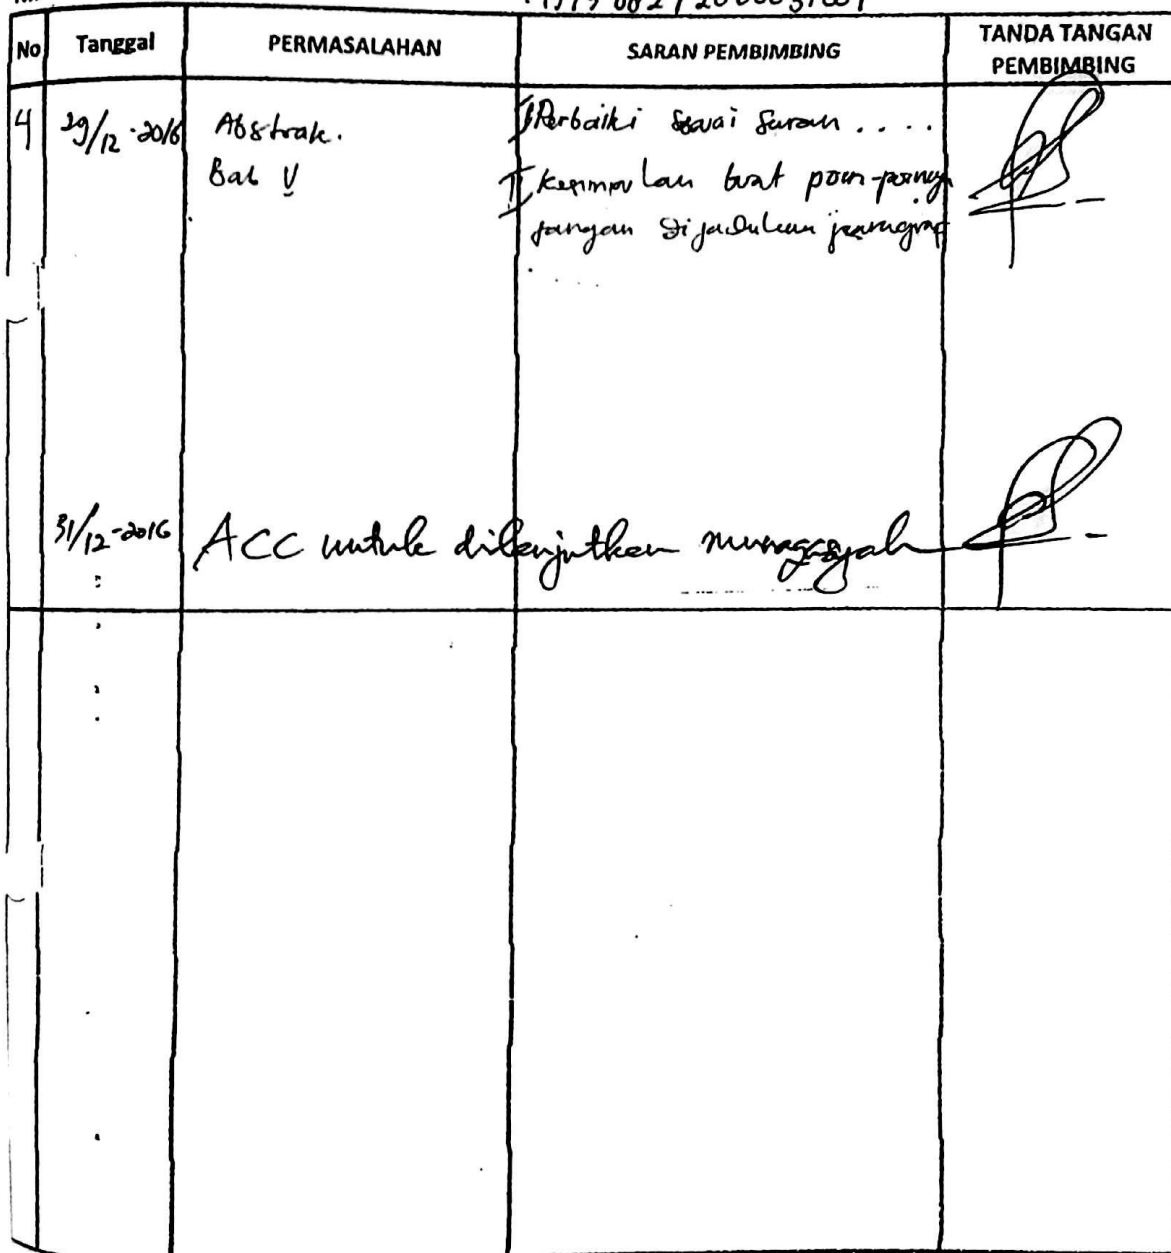 No Tanggal PERMASALAHAN SARAN PEMBIMBING TANDA TANGAN PEMBIMBING
4 29/12-2016 Abstrak. I Perbaiki sesuai saran ....
Bab V II Kesimpulan buat poin-poinnya
jangan dijadikan paragraf
31/12-2016 ACC untuk dilanjutkan munaqasyah